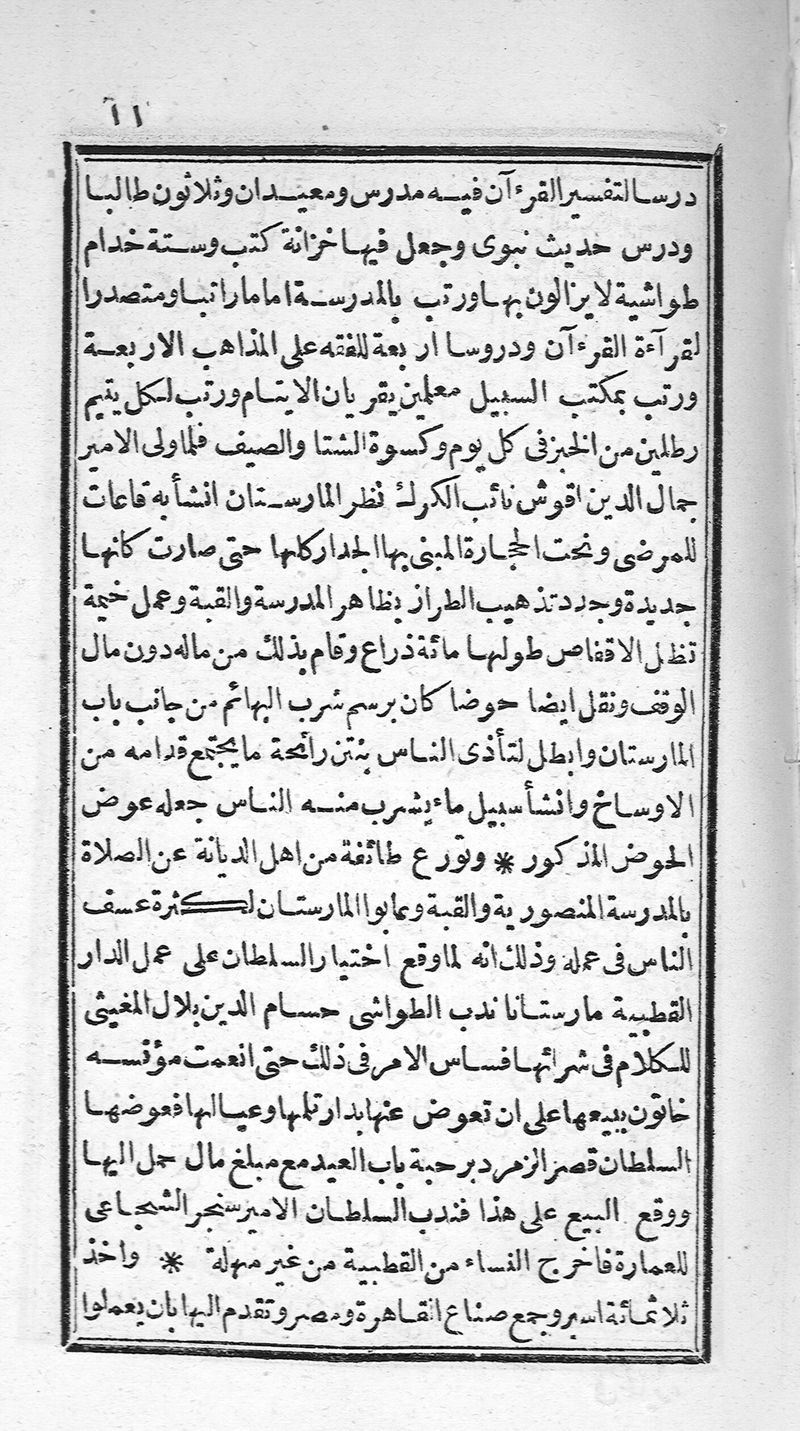 ١١
درسا لتفسير القرءآن فيه مدرس ومعيدان وثلاثون طالبا
ودرس حديث نبوى وجعل فيها خزانة كتب وستة خدام
طواشية لايزالون بها ورتب بالمدرسة اماما راتبا ومتصدرا
لقرآءة القرءآن ودروسا اربعة للفقه على المذاهب الاربعة
ورتب بمكتب السبيل معلمين يقريان الايتام ورتب لكل يتيم
رطلين من الخبز فى كل يوم وكسوة الشتا والصيف فلما ولى الامير
جمال الدين اقوش نائب الكرك نظر المارستان انشأ به قاعات
للمرضى ونحت الحجارة المبنى بها الجدار كلها حتى صارت كانها
جديدة وجدد تذهيب الطراز بظاهر المدرسة والقبة وعمل خيمة
تظل الاقفاص طولها مائة ذراع وقام بذلك من ماله دون مال
الوقف ونقل ايضا حوضا كان برسم شرب البهائم من جانب باب
المارستان وابطل لتأذى الناس بنتن رائحة ما يجتمع قدامه من
الاوساخ وانشأ سبيل ماء يشرب منه الناس جعله عوض
الحوض المذكور * وتورع طائفة من اهل الديانة عن الصلاة
بالمدرسة المنصورية والقبة وعابوا المارستان لكثرة عسف
الناس فى عمله وذلك انه لما وقع اختيار السلطان على عمل الدار
القطبية مارستانا ندب الطواشى حسام الدين بلال المغيثى
للكلام فى شرائها فساس الامر فى ذلك حتى انعمت مؤنسه
خاتون ببيعها على ان تعوض عنها بدار تلمها وعيالها فعوضها
السلطان قصر الزمرد برحبة باب العيد مع مبلغ مال حمل اليها
ووقع البيع على هذا فندب السلطان الامير سنجر الشجاعى
للعمارة فاخرج النساء من القطبية من غير مهلة * واخذ
ثلاثمائة اسير وجمع صناع القاهرة ومصر وتقدم اليها بان يعملوا